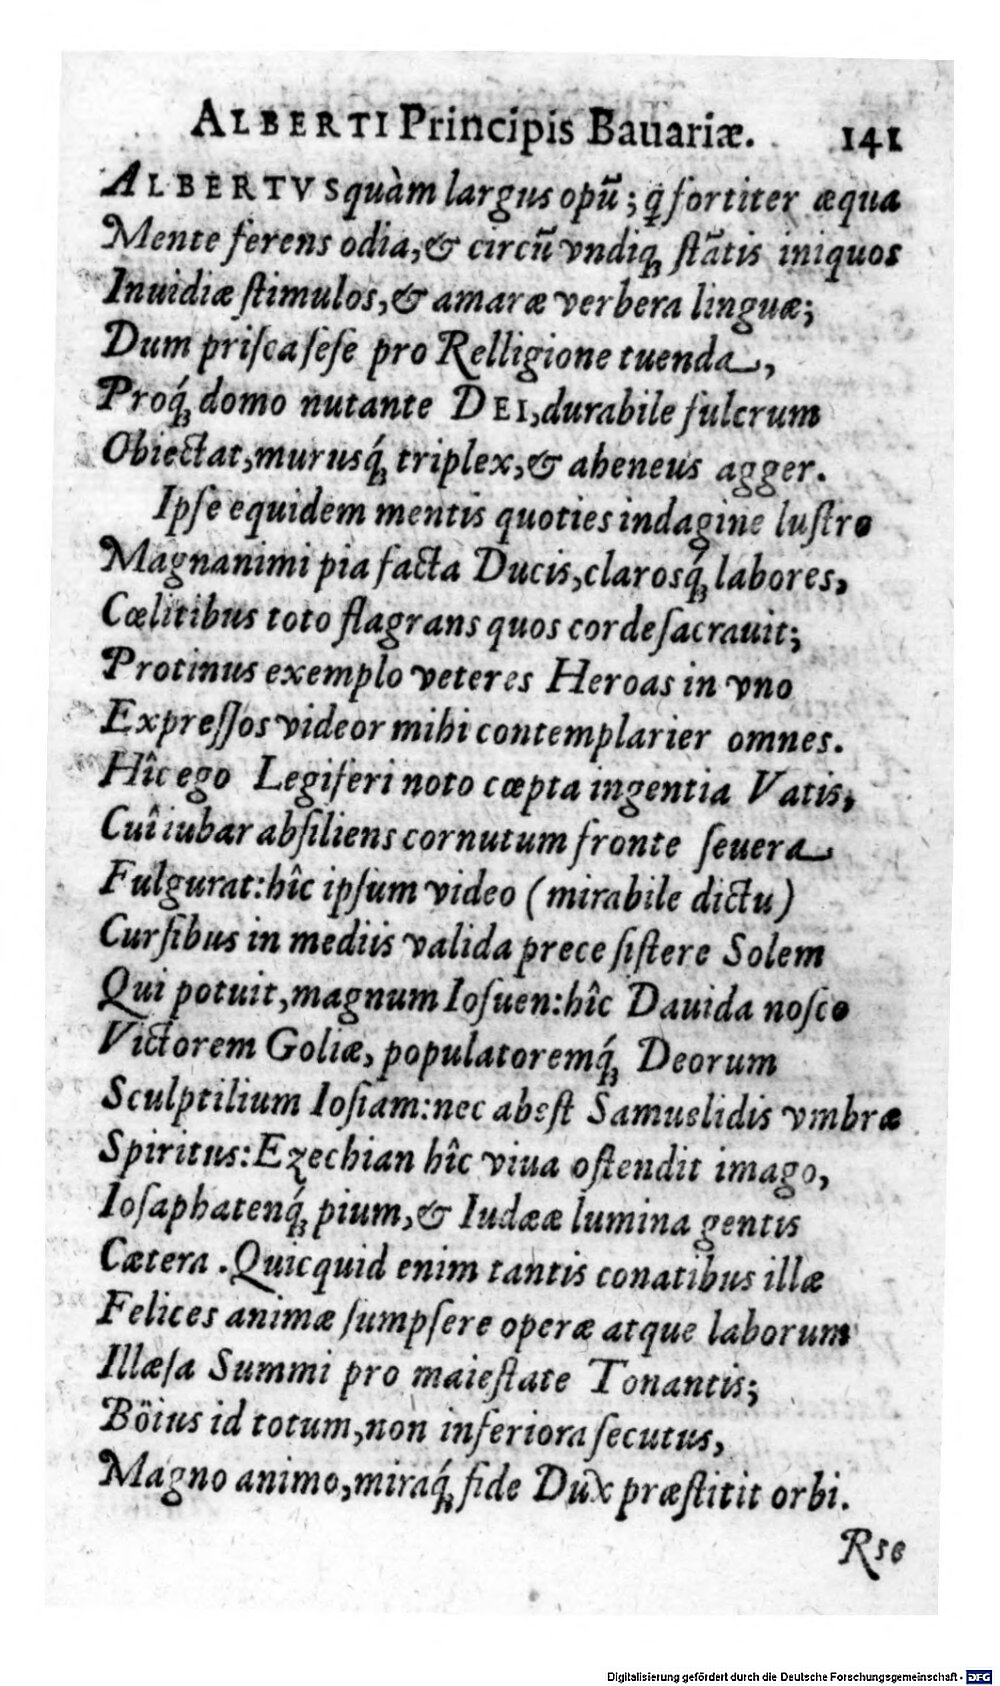 ALBERTI Principis Bauariæ. 141
ALBERTVS quàm largus opũ; q̃ fortiter æqua
Mente ferens odia, & circũ vndiq; stãtis iniquos
Inuidiæ stimulos, & amaræ verbera linguæ;
Dum prisca sese pro Relligione tuenda,
Proq́; domo nutante DEI, durabile fulcrum
Obiectat, murusq́; triplex, & aheneus agger.
Ipse equidem mentis quoties indagine lustro
Magnanimi pia facta Ducis, clarosq́; labores,
Cœlitibus toto flagrans quos corde sacrauit;
Protinus exemplo veteres Heroas in vno
Expressos videor mihi contemplarier omnes.
Hîc ego Legiferi noto cœpta ingentia Vatis,
Cui iubar absiliens cornutum fronte seuera
Fulgurat: hîc ipsum video (mirabile dictu)
Cursibus in mediis valida prece sistere Solem
Qui potuit, magnum Iosuen: hîc Dauida nosco
Victorem Goliæ, populatoremq́; Deorum
Sculptilium Iosiam: nec abest Samuelidis vmbræ
Spiritus: Ezechian hîc viua ostendit imago,
Iosaphatenq́; pium, & Iudææ lumina gentis
Cætera. Quicquid enim tantis conatibus illæ
Felices animæ sumpsere operæ atque laborum
Illæsa Summi pro maiestate Tonantis;
Böius id totum, non inferiora secutus,
Magno animo, miraq́; fide Dux præstitit orbi.
Rse
Digitalisierung gefördert durch die Deutsche Forschungsgemeinschaft - DFG